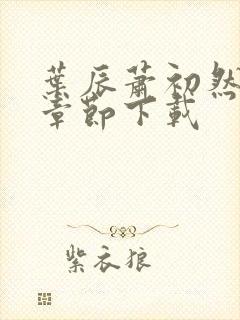 葉辰蕭初然
章節下載
紫衣狼